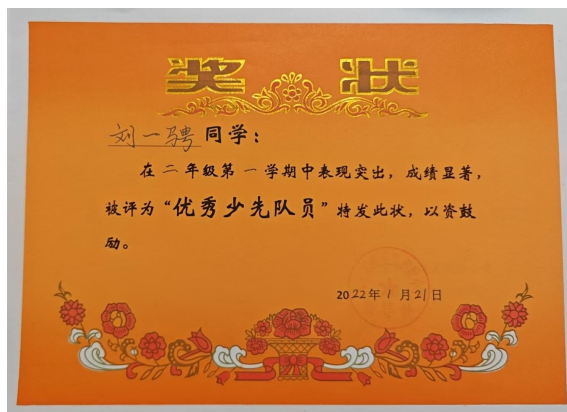 奖状
刘一骋同学：
在二年级第一学期中表现突出，成绩显著，
被评为“优秀少先队员”特发此状，以资鼓
励。
2022年1月21日